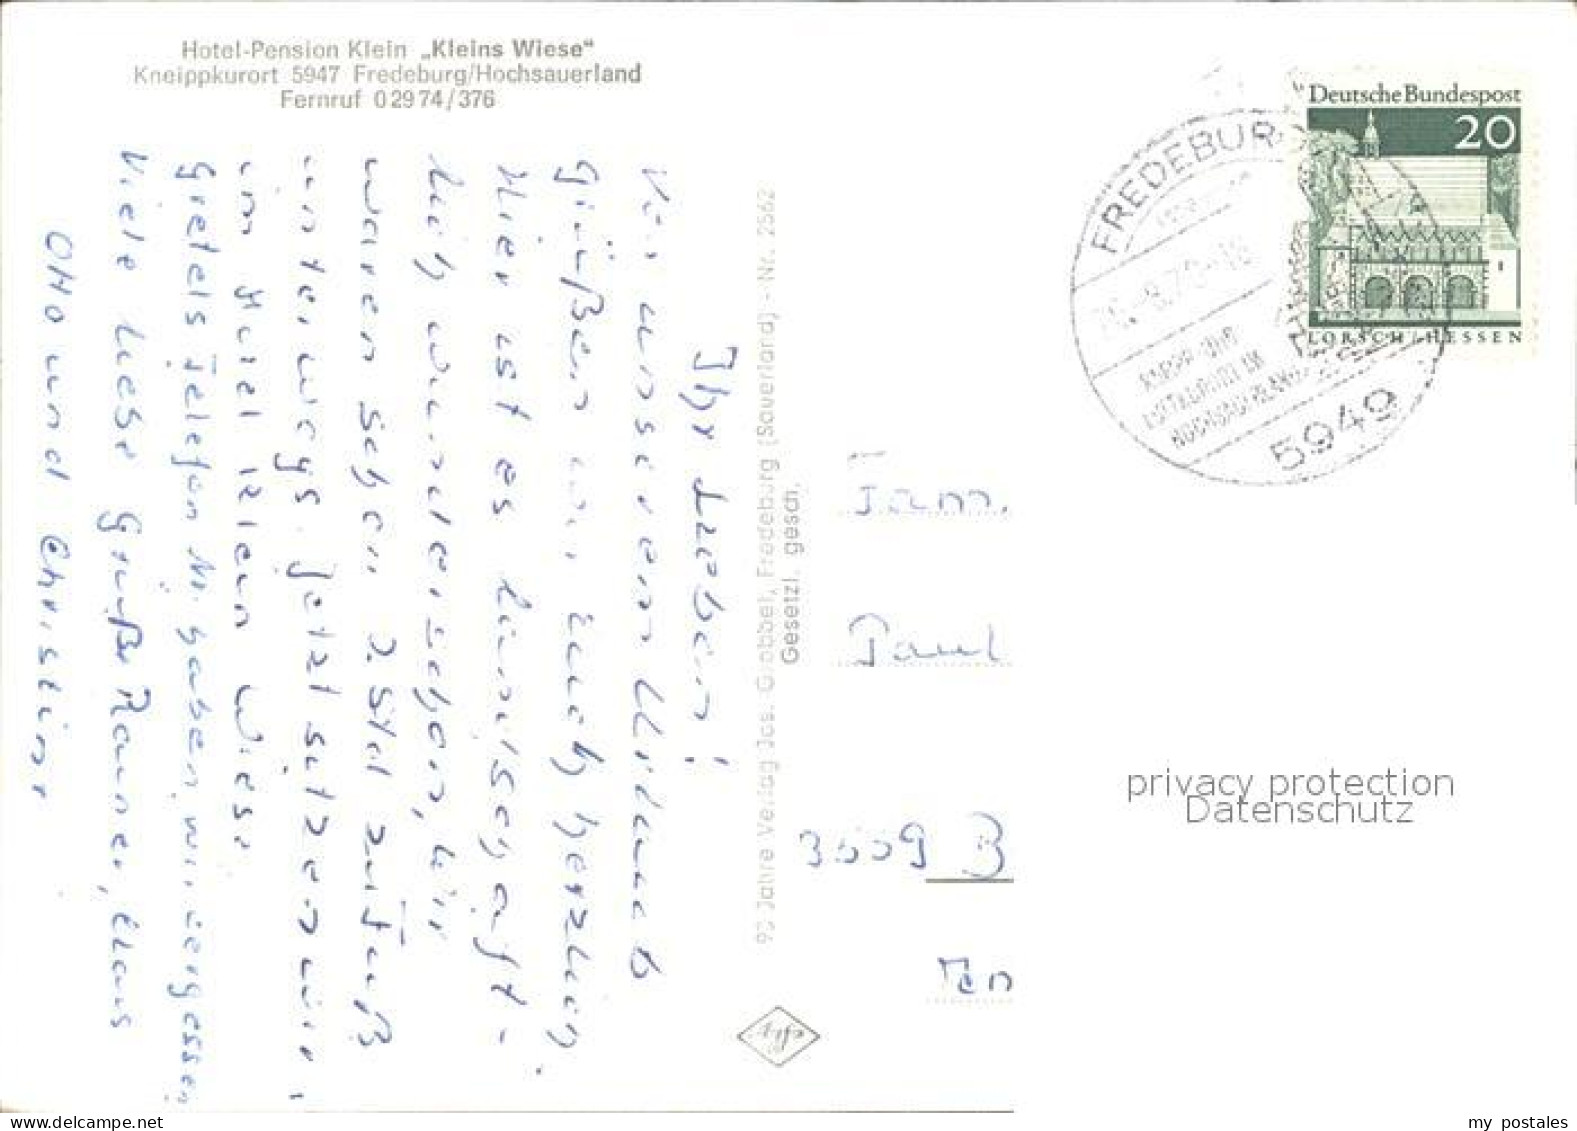 Hotel-Pension Klein „Kleins Wiese“
Kneippkurort 5947 Fredeburg/Hochsauerland
Fernruf 0 29 74 / 376
Deutsche Bundespost
20
LORSCH / HESSEN
FREDEBURG
KNEIPP- UND
LUFTKURORT IM
HOCHSAUERLAND
5949
Ihr Lieben!
Von unserem Urlaub
grüßen wir Euch herzlich.
Hier ist es landschaft-
lich wunderschön, wir
waren schon 2 Std zu Fuß
unterwegs. Jetzt sitzen wir,
im Hotel Klein Wiese.
Gretels Telefon Nr. haben wir vergessen
Viele liebe Grüße Rainer, Claus
Otto und Christine
90 Jahre Verlag Jos. Grobbel, Fredeburg (Sauerland) - Nr. 2562
Gesetzl. gesch.
Fam.
Paul
3559 B
privacy protection
Datenschutz
my postales